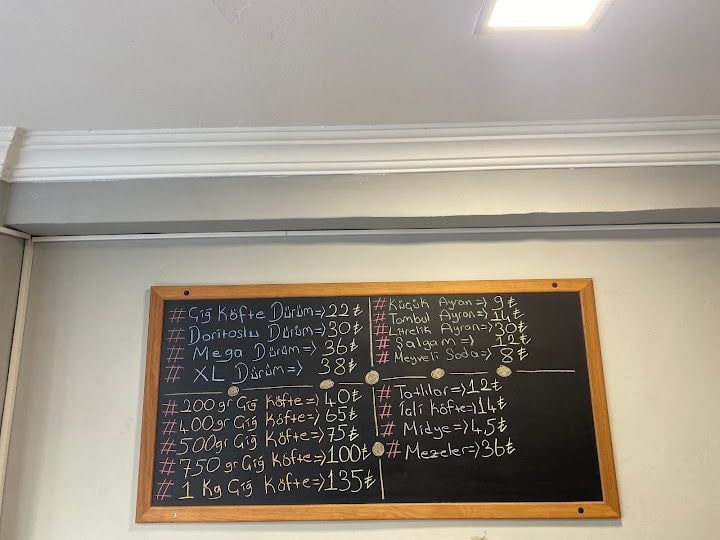 # Çiğ Köfte Dürüm=>22₺
# Doritoslu Dürüm=>30₺
# Mega Dürüm=> 36₺
# XL Dürüm=> 38₺
# 200gr Çiğ Köfte=>40₺
# 400gr Çiğ Köfte=>65₺
# 500gr Çiğ Köfte=>75₺
# 750 gr Çiğ Köfte=>100₺
# 1 Kg Çiğ Köfte=>135₺
# Küçük Ayran=> 9₺
# Tombul Ayran=>14₺
# Litrelik Ayran=>30₺
# Şalgam=> 12₺
# Meyveli Soda=> 8₺
# Tatlılar=>12₺
# İçli Köfte=>14₺
# Midye=>4,5₺
# Mezeler=>36₺